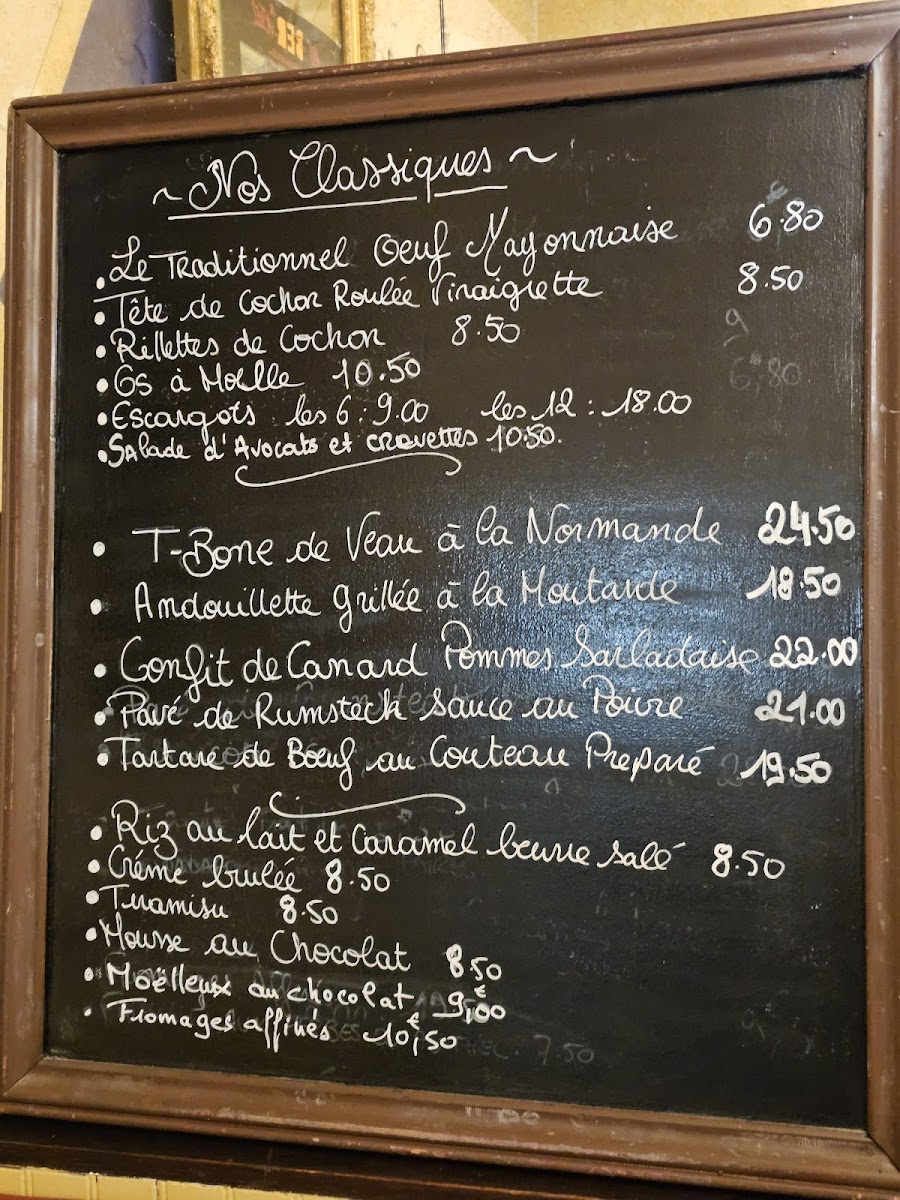 ~ Nos Classiques ~
• Le Traditionnel Oeuf Mayonnaise 6.80
• Tête de Cochon Roulée Vinaigrette 8.50
• Rillettes de Cochon 8.50
• Os à Moelle 10.50
• Escargots les 6 : 9.00 les 12 : 18.00
• Salade d'Avocats et crevettes 10.50.
• T-Bone de Veau à la Normande 24.50
• Andouillette Grillée à la Moutarde 18.50
• Confit de Canard Pommes Sarladaise 22.00
• Pavé de Rumsteck Sauce au Poivre 21.00
• Tartare de Bœuf au Couteau Preparé 19.50
• Riz au lait et Caramel beurre salé 8.50
• Crème brulée 8.50
• Tiramisu 8.50
• Mousse au Chocolat 8.50
• Moëlleux au chocolat 9,00€
• Fromages affinés 10,50€
7.50